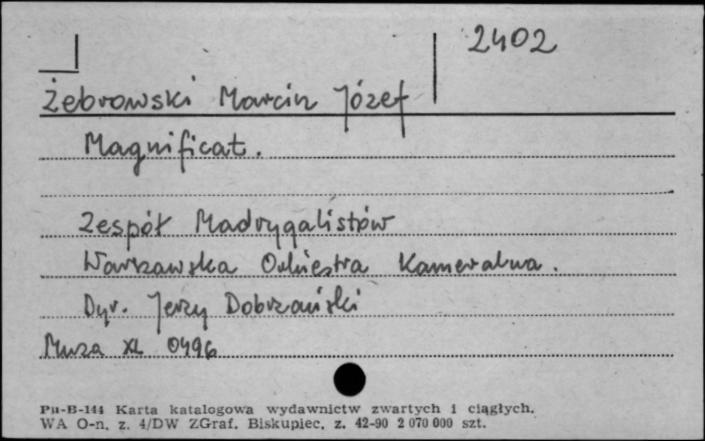 2402
Żebrowski Marcin Józef
Magnificat.
Zespół Madrygalistów
Warszawska Orkiestra Kameralna.
Dyr. Jerzy Dobrzański
Muza XL 0496
Pu-B-144 Karta katalogowa wydawnictw zwartych i ciągłych.
WA O-n. z. 4/DW ZGraf. Biskupiec, z. 42-90 2 070 000 szt.